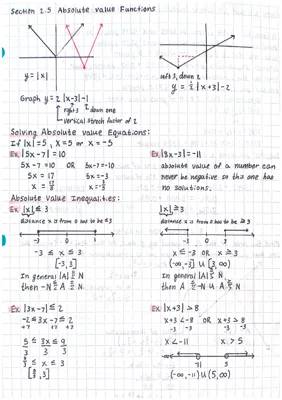 Section 2.5 Absolute Value Functions
y = |x|
left 3, down 2
y = ½ |x+3| - 2
Graph y = 2 |x-3| - 1
right 3 down one
vertical stretch factor of 2
Solving Absolute Value Equations:
If |x| = 5, x = 5 or x = -5
Ex: |5x - 7| = 10
5x - 7 = 10 OR 5x - 7 = -10
5x = 17 5x = -3
x = 17/5 x = -3/5
Ex: |8x - 3| = -11
absolute value of a number can
never be negative so this one has
no solutions.
Absolute Value Inequalities:
Ex: |x| ≤ 3
distance x is from 0 has to be ≤ 3
-3 0 3
-3 ≤ x ≤ 3
[-3, 3]
In general |A| ≤ N
then -N ≤ A ≤ N
|x| ≥ 3
distance x is from 0 has to be ≥ 3
-3 0 3
x ≤ -3 OR x ≥ 3
(-∞, -3] ∪ [3, ∞)
In general |A| ≥ N
Ex: |3x - 7| ≤ 2
-2 ≤ 3x - 7 ≤ 2
+7 +7 +7
5 ≤ 3x ≤ 9
3 3 3
5/3 ≤ x ≤ 3
[5/3, 3]
Ex: |x + 3| > 8
x + 3 < -8 OR x + 3 > 8
-3 -3 -3 -3
x < -11 x > 5
-11 5
(-∞, -11) ∪ (5, ∞)